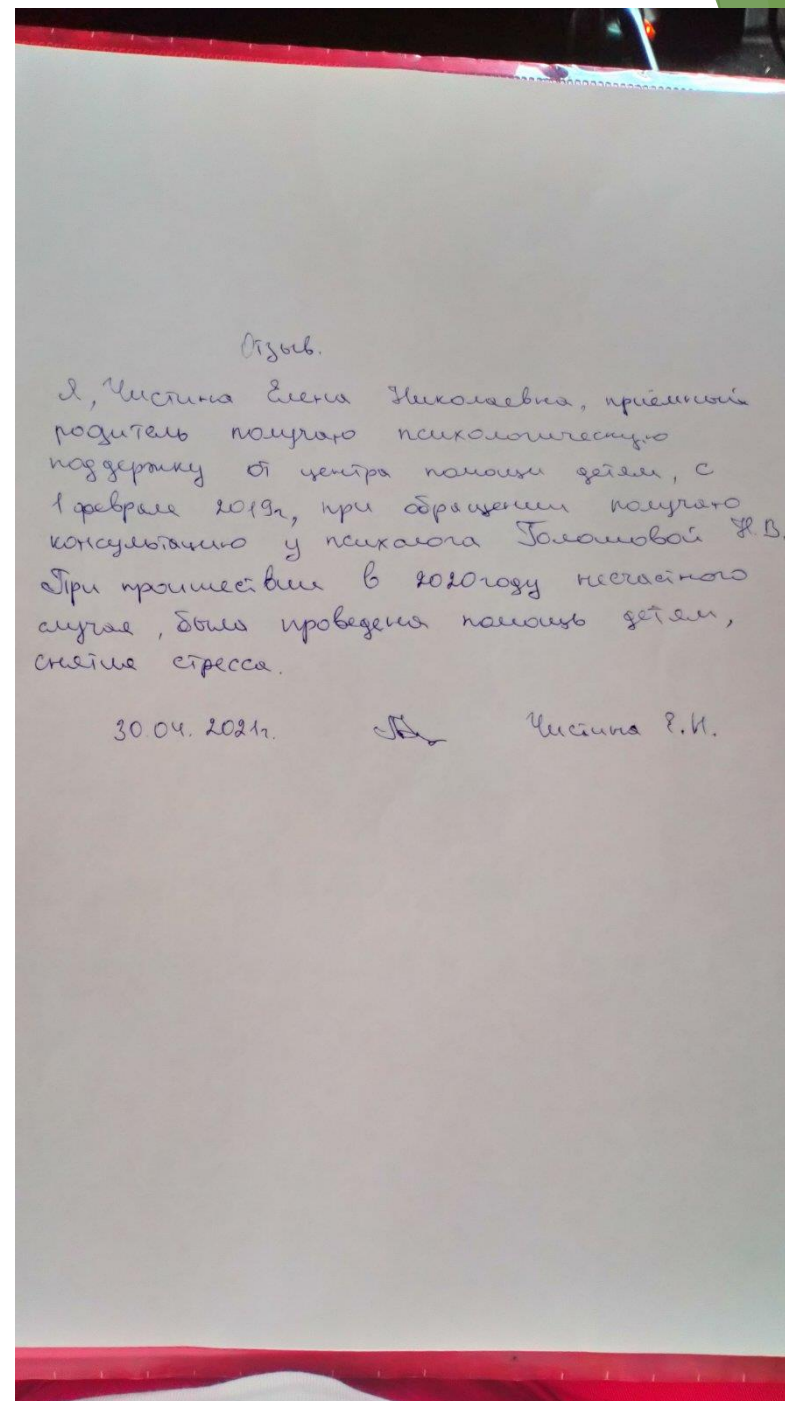 Отзыв.
Я, Чистина Елена Николаевна, приёмный
родитель получаю психологическую
поддержку от центра помощи детям, с
1 февраля 2019г, при обращении получаю
консультацию у психолога Голомовой Н.В.
При происшествии в 2020 году несчастного
случая, была проведена помощь детям,
снятия стресса.
30.04.2021г. Чистина Е.Н.